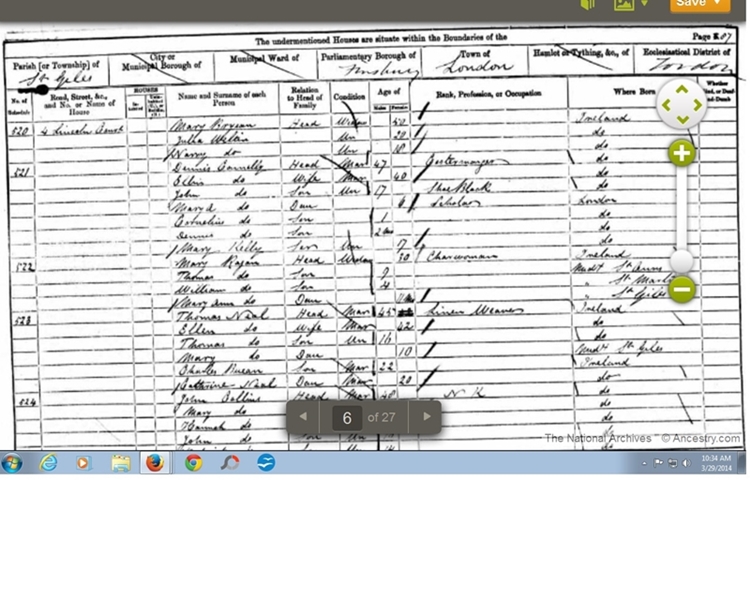 Save
The undermentioned Houses are situate within the Boundaries of the
Page 207
Parish [or Township] of
City or Municipal Borough of
Municipal Ward of
Parliamentary Borough of
Town of
Hamlet or Tything, &c., of
Ecclesiastical District of
St Giles
Finsbury
London
London
No. of Schedule
Road, Street, &c., and No. or Name of House
HOUSES
Name and Surname of each Person
Relation to Head of Family
Condition
Age of
Males Females
Rank, Profession, or Occupation
Where Born
Whether
520 4 Lincoln Court Mary Head Widow 50 Ireland
Julia Un 20 do
do Un 18 do
521 Dennis Connelly Head Mar 47 Costermonger do
Ellen do Wife Mar 40 do
John do Son Un 17 Shoe Black do
Mary do Dau 6 Scholar London
Cornelius do Son 1 do
Dennis do Son do
Mary Kelly Un 7 do
522 Mary Head Widow 30 Charwoman Ireland
Thomas do Son 9 Middx St Anns
William do Son 4 " St
Mary Ann do Dau " St Giles
523 Thomas Neal Head Mar 45 Linen Weaver Ireland
Ellen do Wife Mar 42 do
Thomas do Son Un 16 do
Mary do Dau 10 Middx St Giles
Charles Son Mar 22 Ireland
Catherine Neal Dau Mar 20 do
524 John Collins Head Mar N K do
Mary do do
Hannah do do
John do Son Un do
6 of 27
The National Archives © Ancestry.com
10:34 AM
3/29/2014